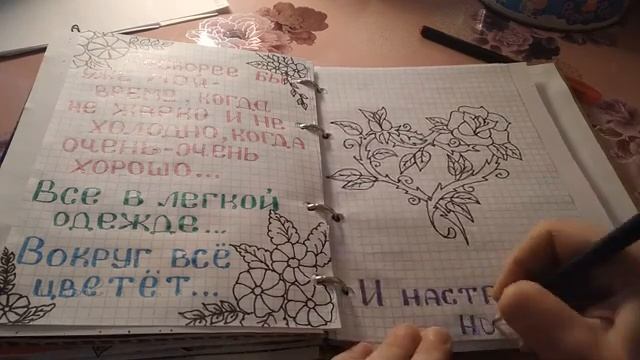 скорее бы
уже май-
время, когда
не жарко и не
холодно, когда
очень-очень
хорошо...
Все в легкой
одежде...
Вокруг всё
цветёт...
И настр
но